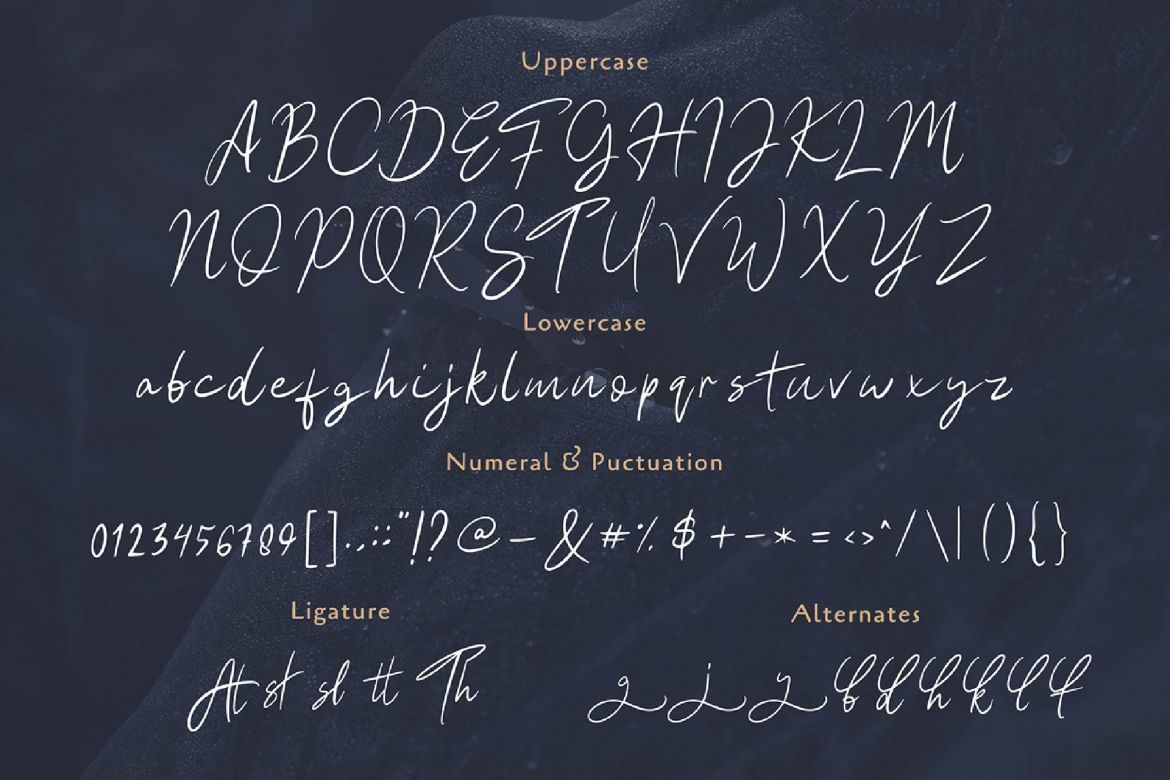 Uppercase
ABCDEFGHIJKLM
NOPQRSTUVWXYZ
Lowercase
abcdefghijklmnopqrstuvwxyz
Numeral & Puctuation
0123456789[].,:;"!?@–&#%$+-*=<>^/\|(){}
Ligature
Alternates
At st sl tt Th
g j y b d h k l f